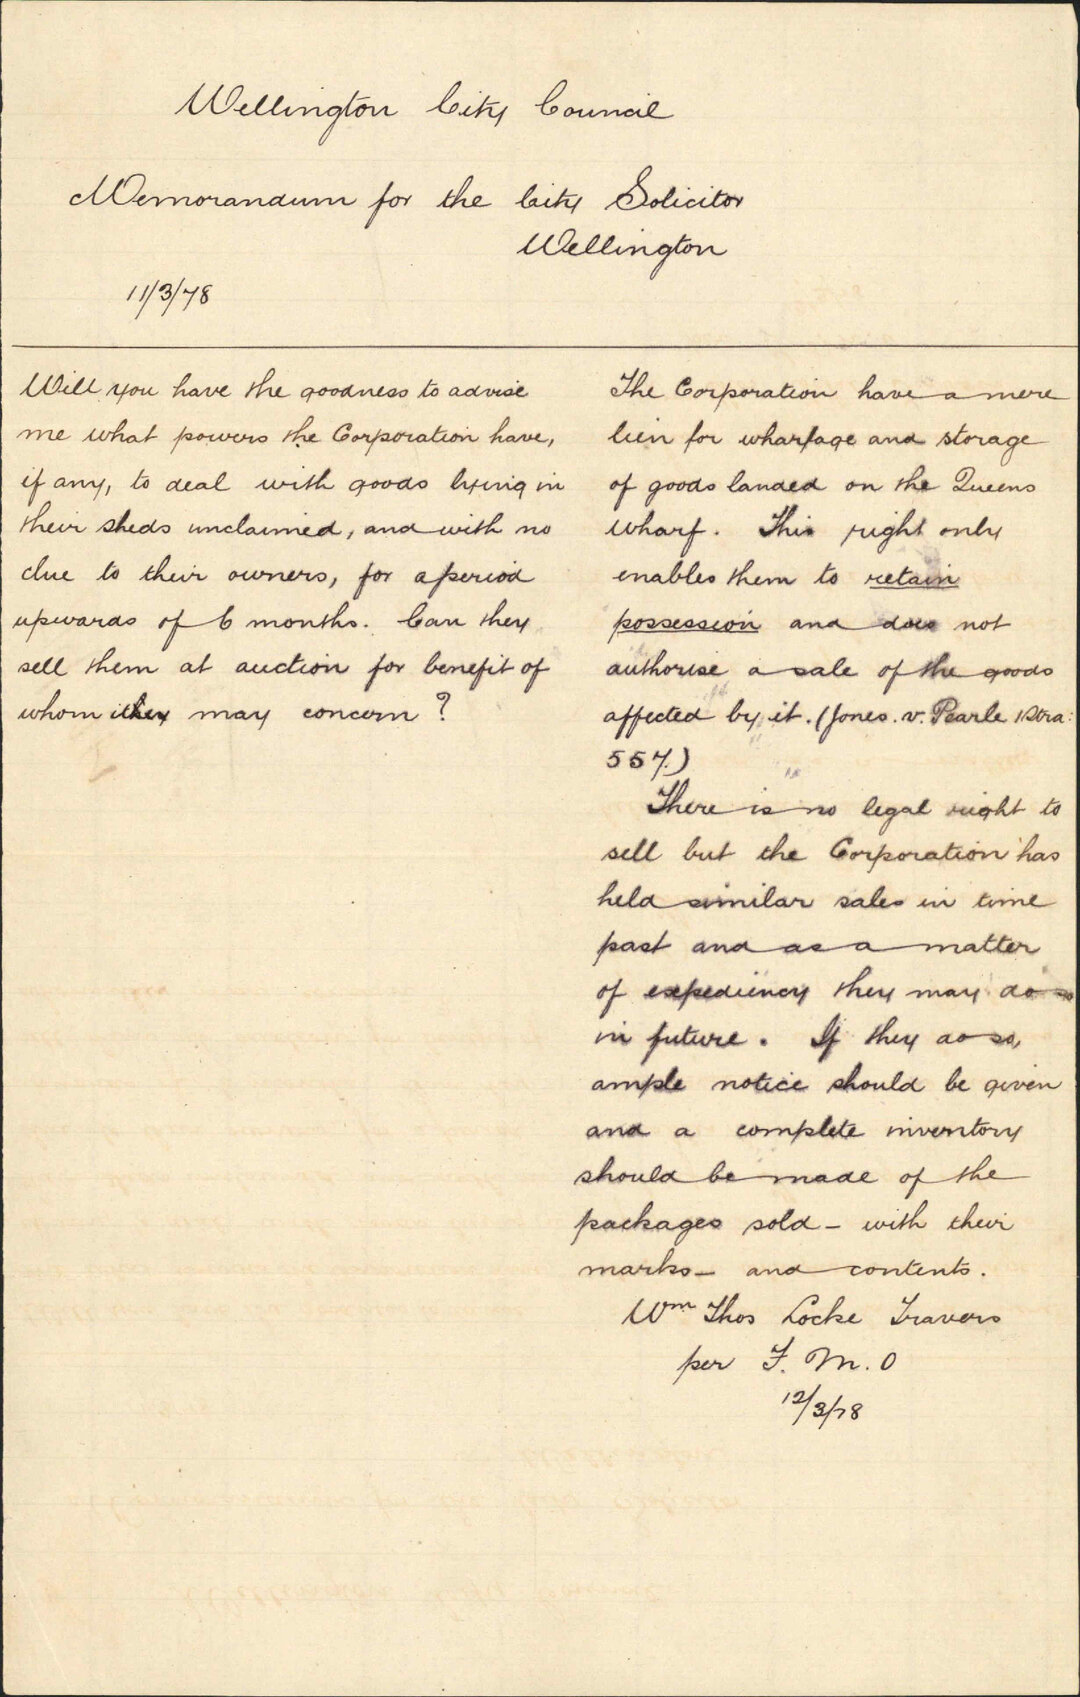 Wellington City Council
Memorandum for the City Solicitor
Wellington
11/3/78
Will you have the goodness to advise
me what powers the Corporation have,
if any, to deal with goods lying in
their sheds unclaimed, and with no
clue to their owners, for a period
upwards of 6 months. Can they
sell them at auction for benefit of
whom they may concern?
The Corporation have a mere
lien for wharfage and storage
of goods landed on the Queens
Wharf. This right only
enables them to retain
possession and does not
authorise a sale of the goods
affected by it. (Jones. v. Pearle 1 Stra:
557.)
There is no legal right to
sell but the Corporation has
held similar sales in time
past and as a matter
of expediency they may do so
in future. If they do so,
ample notice should be given
and a complete inventory
should be made of the
packages sold - with their
marks - and contents.
Wm Thos Locke Travers
per F. M. O
12/3/78